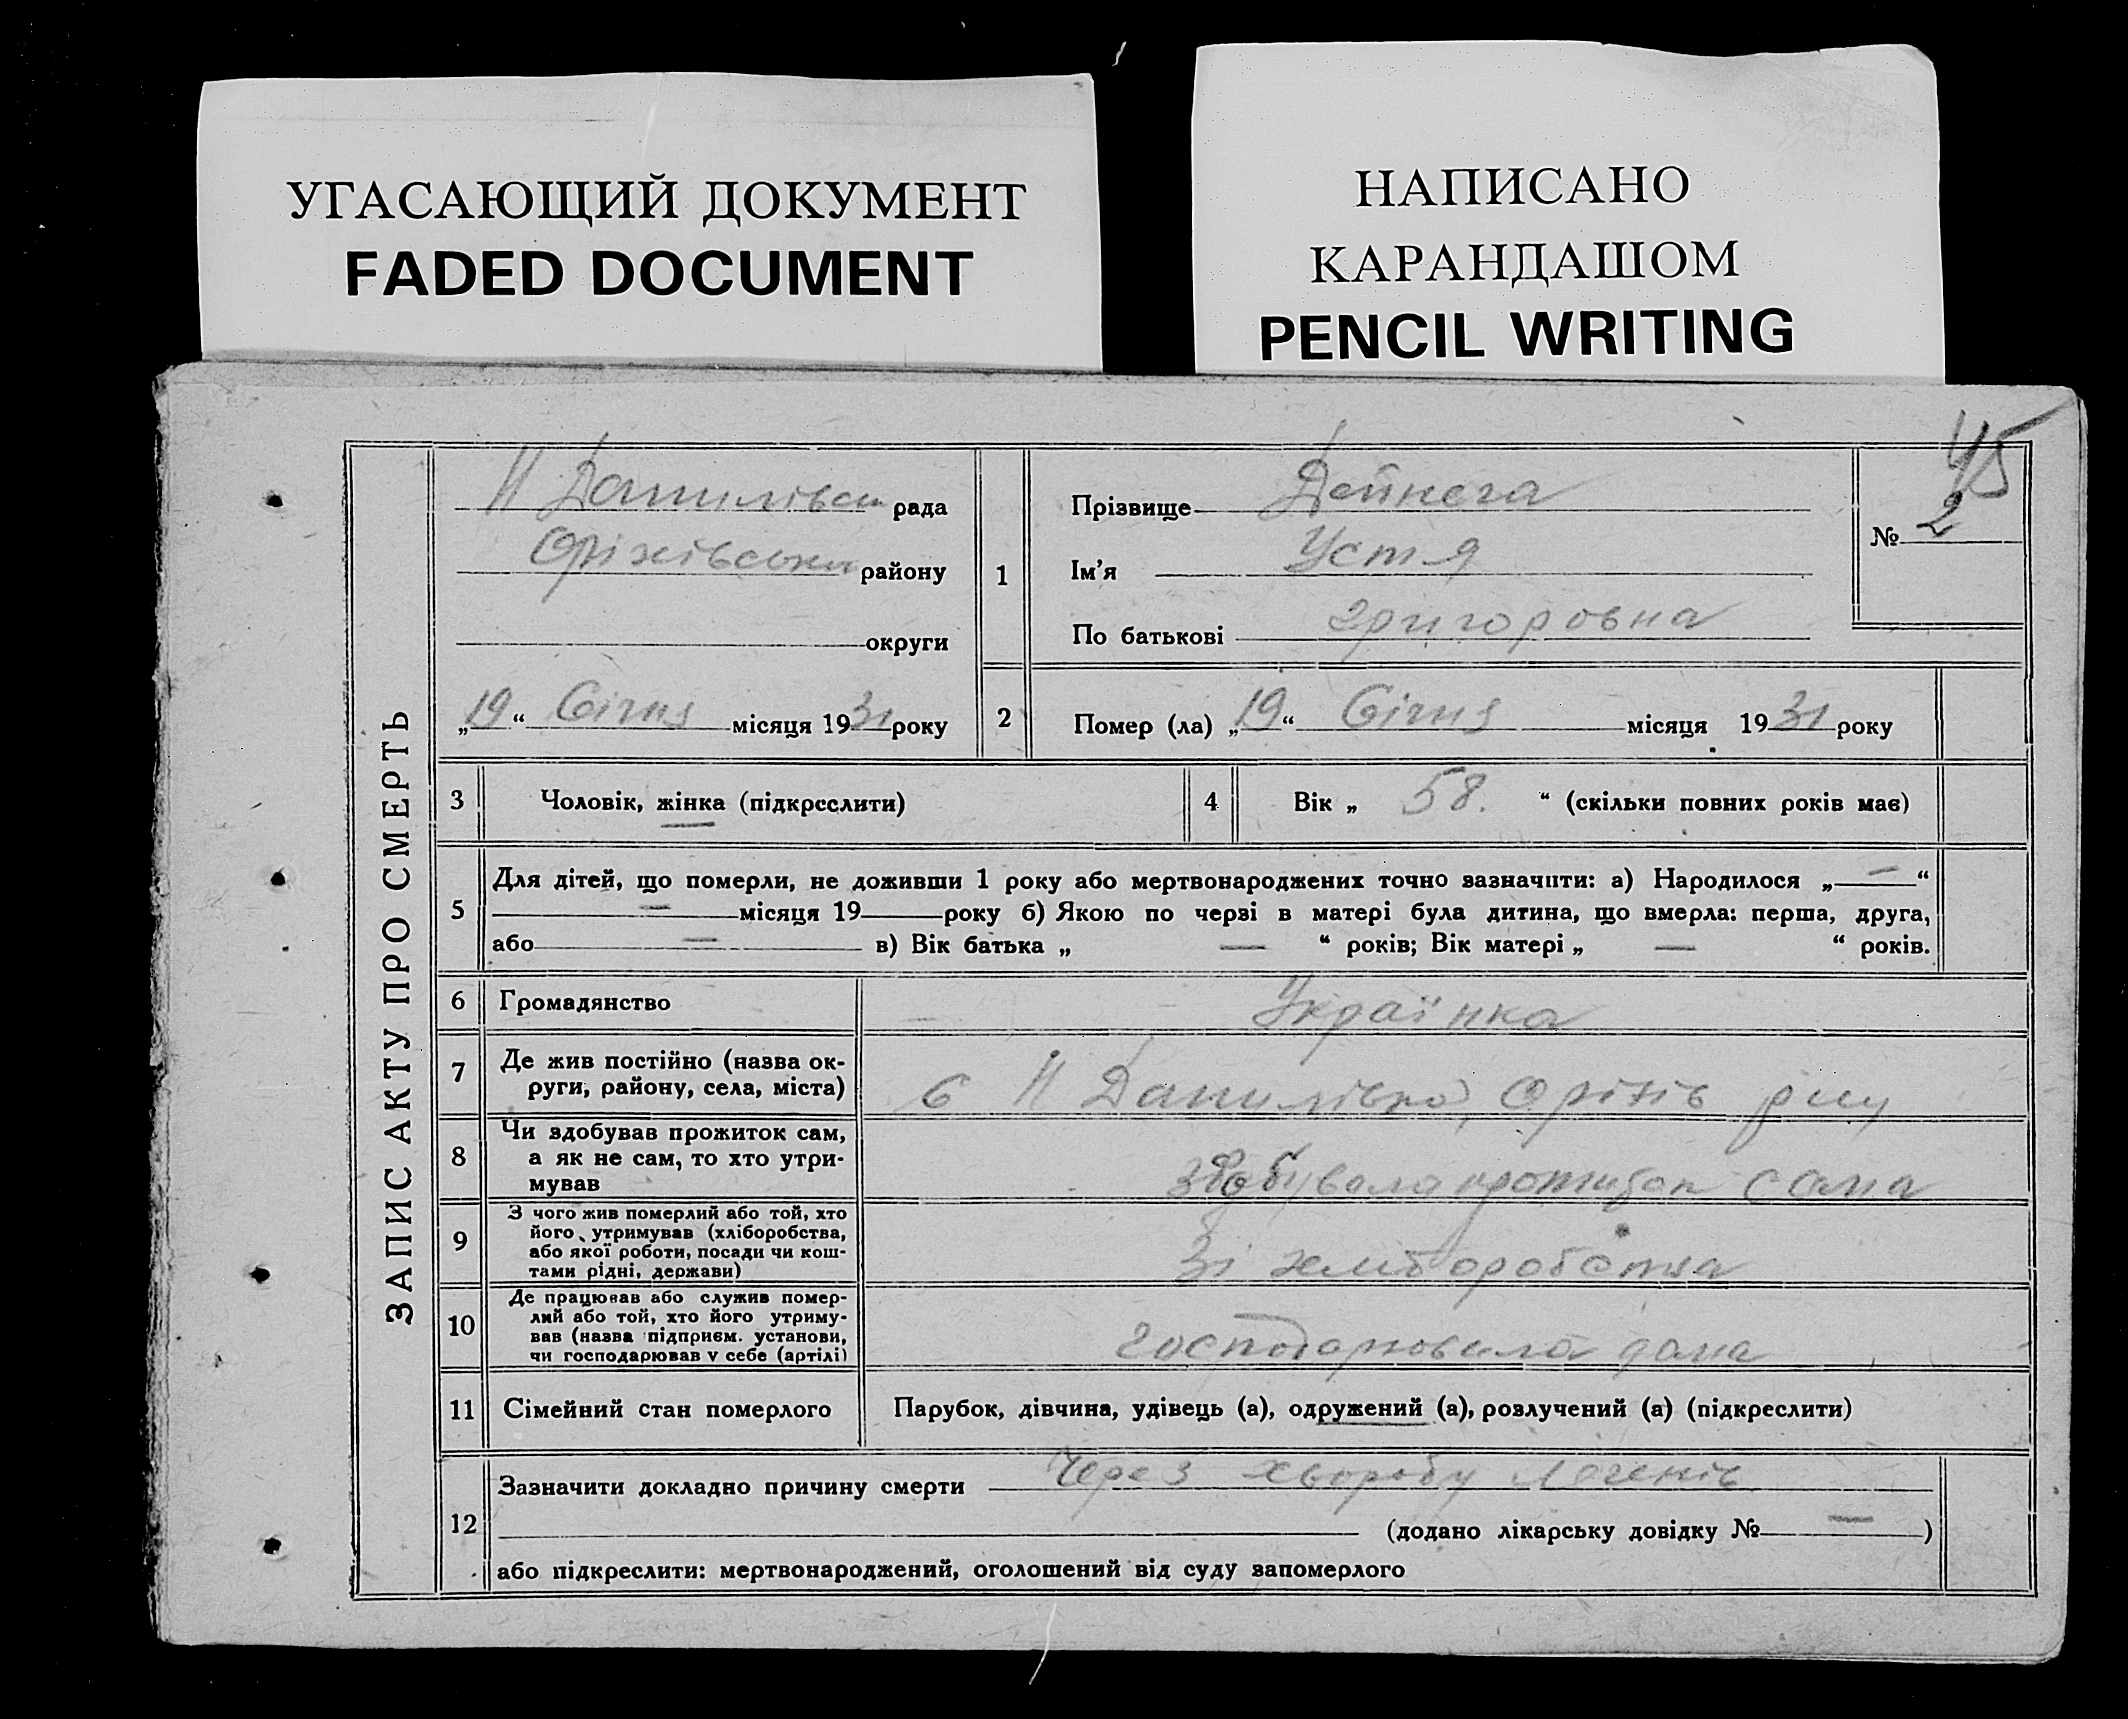 УГАСАЮЩИЙ ДОКУМЕНТ
FADED DOCUMENT
НАПИСАНО
КАРАНДАШОМ
PENCIL WRITING
45
ЗАПИС АКТУ ПРО СМЕРТЬ
Н Данилівсь рада
Оріхівська району
округи
„19“ Січня місяця 1931 року
1
Прізвище Дейнега
Ім'я Устя
По батькові Григоровна
№ 2
2 Помер (ла) „19“ Січня місяця 1931 року
3 Чоловік, жінка (підкреслити)
4 Вік „ 58. “ (скільки повних років має)
5 Для дітей, що померли, не доживши 1 року або мертвонароджених точно зазначити: а) Народилося „—“
— місяця 19 року б) Якою по черзі в матері була дитина, що вмерла: перша, друга,
або — в) Вік батька „ — “ років; Вік матері „ — “ років.
6 Громадянство Українка
7 Де жив постійно (назва ок-
руги, району, села, міста) с Н Данилівка, Оріхів рну
8 Чи здобував прожиток сам,
а як не сам, то хто утри-
мував здобувала прожиток сама
9 З чого жив померлий або той, хто
його утримував (хліборобства,
або якої роботи, посади чи кош-
тами рідні, держави) Зі хліборобства
10 Де працював або служив помер-
лий або той, хто його утриму-
вав (назва підприєм. установи,
чи господарював у себе (артілі) господарювала дома
11 Сімейний стан померлого Парубок, дівчина, удівець (а), одружений (а), розлучений (а) (підкреслити)
12 Зазначити докладно причину смерти Через хворобу легенів
(додано лікарську довідку № — )
або підкреслити: мертвонароджений, оголошений від суду запомерлого